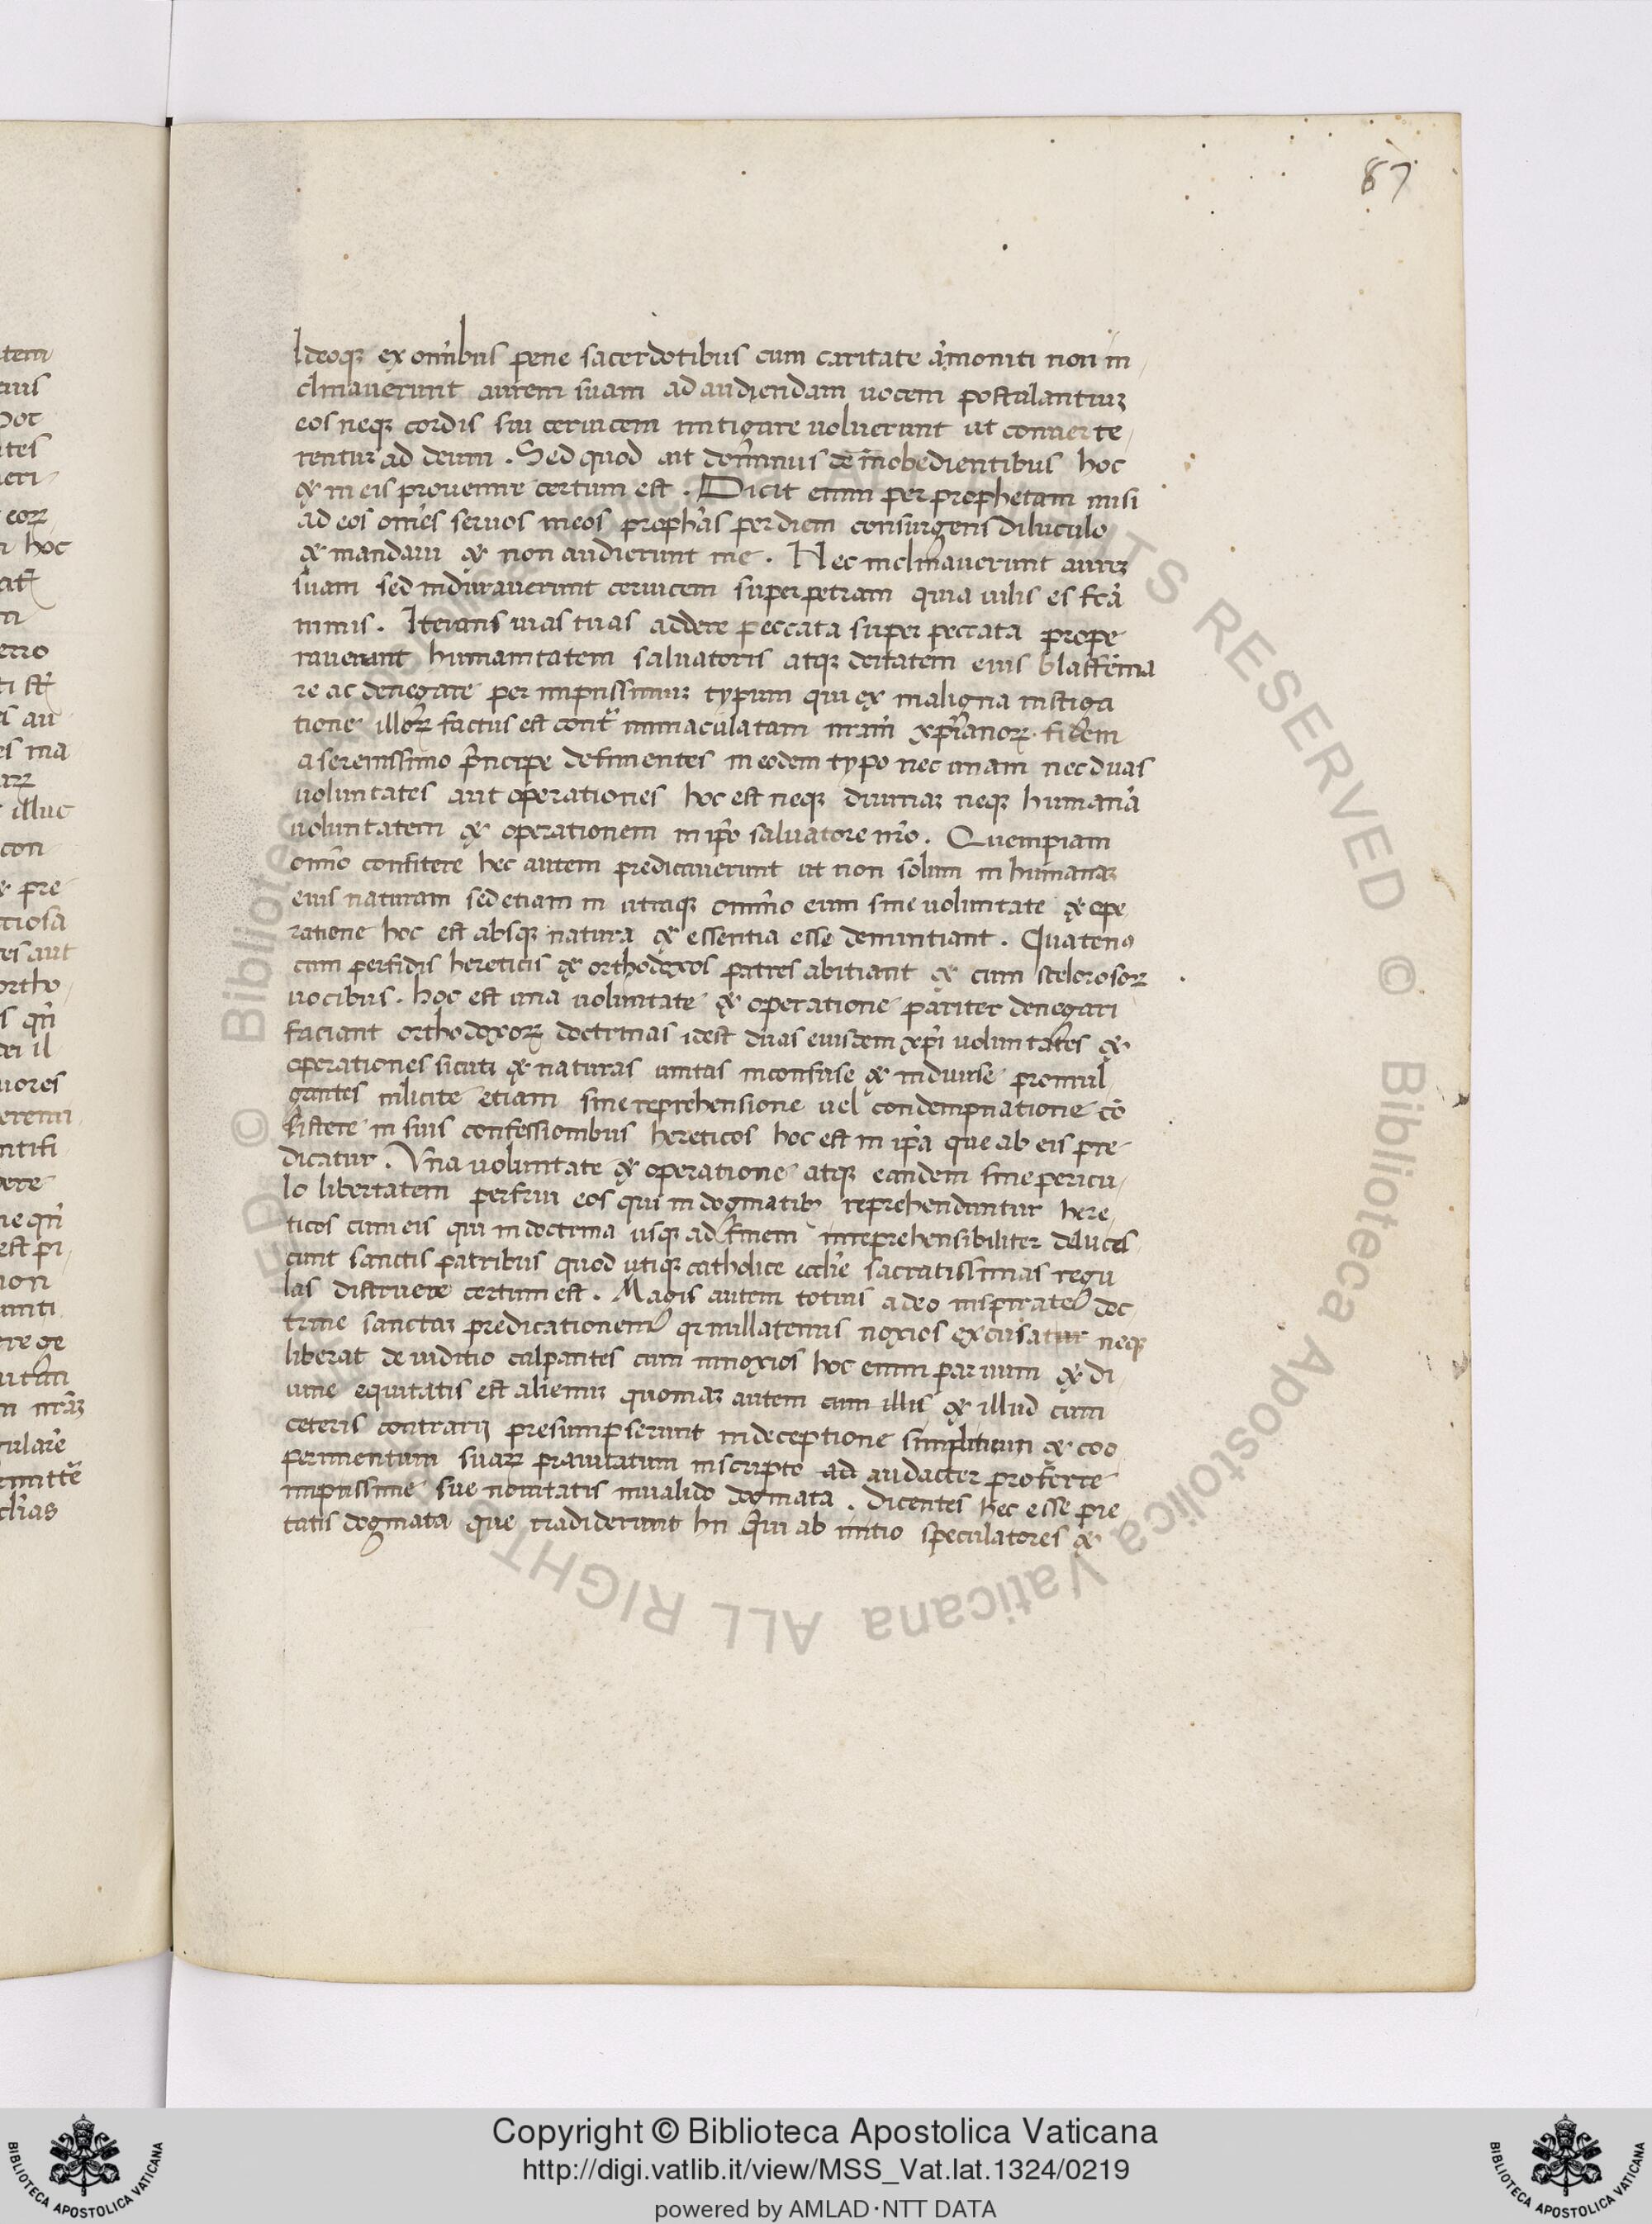 87
Ideoqꝫ ex om̅ibus pene sacerdotibus cum caritate am̅oniti non in
clinauerunt aurem suam ad audiendam uocem postulantiuꝫ
eos neqꝫ cordis sui ceruicem mitigare uoluerunt ut conuerte
rentur ad deum. Sed quod ait dom̅inus de inobedientibus hoc
& in eis prouenire certum est. Dicit enim per prophetam misi
ad eos om̅es seruos meos proph̅as per diem consurgens diluculo
& mandaui & non audierunt me. Nec inclinauerunt aureꝫ
suam sed indurauerunt ceruicem super petram quia uilis es fc̅a
nimis. Iterans uias tuas addere peccata super peccata prope
rauerunt humanitatem saluatoris atqꝫ deitatem eius blasfema
re ac denegare per impiissimuꝫ typum qui ex maligna instiga
tione illoꝝ factus est cont͛ immaculatam nr̅am xp̅ianoꝝ fidem
a serenissimo p̅ncipe definientes in eodem typo nec unam nec duas
uoluntates aut operationes hoc est neqꝫ diuinaꝫ neqꝫ humana̅
uoluntatem & operationem in ip̅o saluatore nr̅o. Quempiam
om̅o confitere hec autem predicauerunt ut non solum in humanaꝫ
eius naturam sed etiam in utraqꝫ omnino eum sine uoluntate & ope
ratione hoc est absqꝫ natura & essentia esse denuntiant. Quatenꝰ
cum perfidis hereticis & orthodoxos patres abitiant & cum scelorosoꝝ
uocibus. hoc est una uoluntate & operatione pariter denegari
faciant orthodoxoꝝ doctrinas idest duas eiusdem xp̅i uoluntates &
operationes sicuti & naturas unitas inconfuse & indiuise promul
gantes inlicite etiam sine reprehensione uel condempnatione co̅
sistere in suis confessionibus hereticos hoc est in ip̅a que ab eis pre
dicatur. Vna uoluntate & operatione atqꝫ eandem sine pericu
lo libertatem perfrui eos qui in dogmatibꝫ reprehenduntur here
ticos cum eis qui in doctrina usqꝫ ad finem inreprehensibiliter deluces
cunt sanctis patribus quod utiqꝫ catholice eccl̅ie sacratissimas regu
las distruere certum est. Magis autem totius a deo inspirate doc
trine sanctaꝫ predicationem qꝛ nullatenus noxios excusatur neqꝫ
liberat de uiditio culpantes cum innoxios hoc enim paruum & di
uine equitatis est alienuꝫ quoniaꝫ autem cum illis & illud cum
ceteris contrarij presumpserunt in deceptione simplicium & coo
perimentum suaꝝ prauitatum in scripto ad audacter proferre
impiissime sue nouitatis inualido dogmata. Dicentes hec esse pie
tatis dogmata que tradiderunt hii Qui ab initio speculatores &
Copyright © Biblioteca Apostolica Vaticana
http://digi.vatlib.it/view/MSS_Vat.lat.1324/0219
powered by AMLAD·NTT DATA